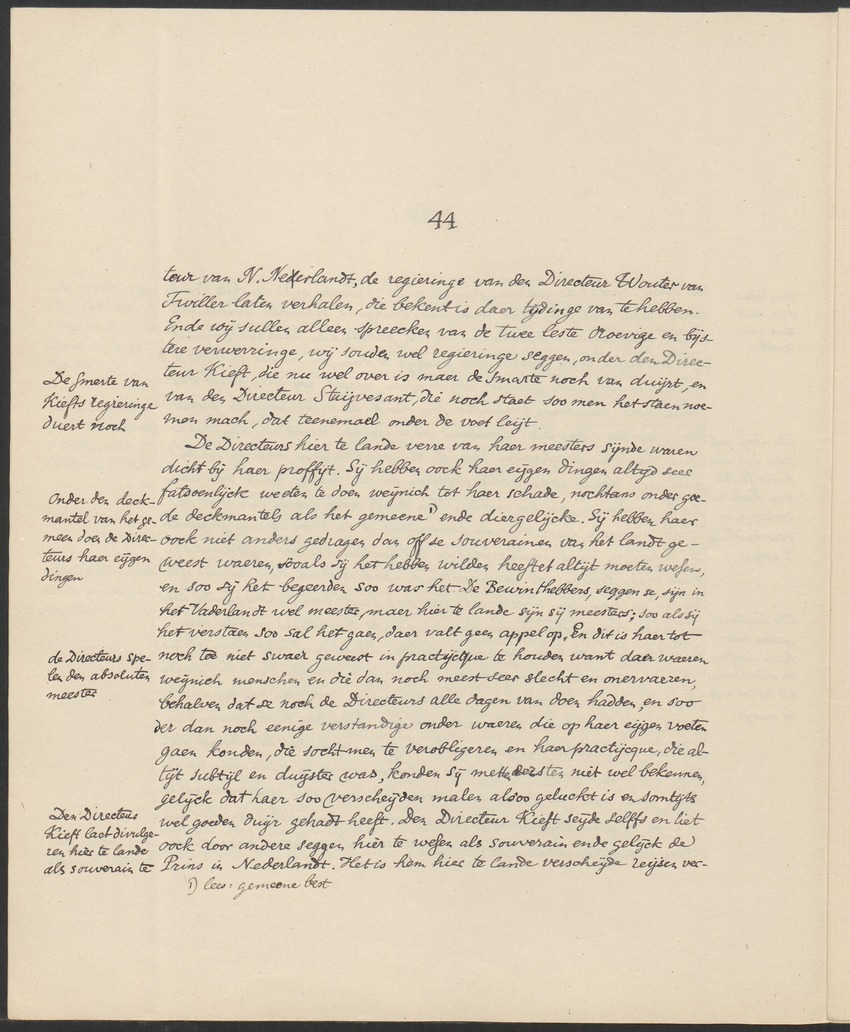 44
teur van N. Nederlandt, de regieringe van den Directeur Wouter van
Twiller laten verhalen, die bekent is daer tydinge van te hebben.
Ende wij sullen alleen spreecken van de twee leste droevige en bijs-
tere verwerringe, wij souden wel regieringe seggen, onder den Direc-
teur Kieft, die nu wel over is maer de smarte noch van duijrt, en
van den Directeur Stuijvesant, die noch staet soo men het staen noe-
men mach, dat teenemael onder de voet leijt.
De Smerte van
Kiefts regieringe
duert noch
De Directeurs hier te lande verre van haer meesters sijnde waren
dicht bij haer proffijt. Sij hebben oock haer eijgen dingen altyd seer
fatsoenlijck weeten te doen weijnich tot haer schade, nochtans onder goe-
de deckmantels als het gemeene 1) ende diergelijcke. Sij hebben haer
oock niet anders gedragen dan off se souverainen van het landt ge-
weest waeren, sooals sij het hebben wilden heeftet altijt moeten wesen,
en soo sij het begeerden soo was het. De Bewinthebbers, seggen se, sijn in
het Vaderlandt wel meester, maer hier te lande sijn sij meesters; soo als sij
het verstaen soo sal het gaen, daer valt geen appel op. En dit is haer tot
noch toe niet swaer geweest in practijcque te houden want daer waeren
weijnich menschen en die dan noch meest seer slecht en onervaeren,
behalven dat se noch de Directeurs alle dagen van doen hadden, en soo
der dan noch eenige verstandige onder waeren die op haer eijgen voeten
gaen konden, die socht men te verobligeren en haer practijcque, die al-
tijt subtijl en duijster was, konden sij mette eersten niet wel bekennen,
gelijck dat haer soo verscheijden malen alsoo geluckt is en somtijts
wel goeden duijr gehadt heeft. Den Directeur Kieft seijde selffs en liet
oock door andere seggen hier te wesen als souverain ende gelijck de
Prins in Nederlandt. Het is hem hier te lande verscheijde reijsen ver-
onder den deck-
mantel van het ge-
meen doen de Direc-
teurs haer eijgen
dingen
de Directeurs spe-
len den absoluten
meester
Den Directeur
Kieft laet divulge-
ren hier te lande
als souverain te
1) lees: gemeene best